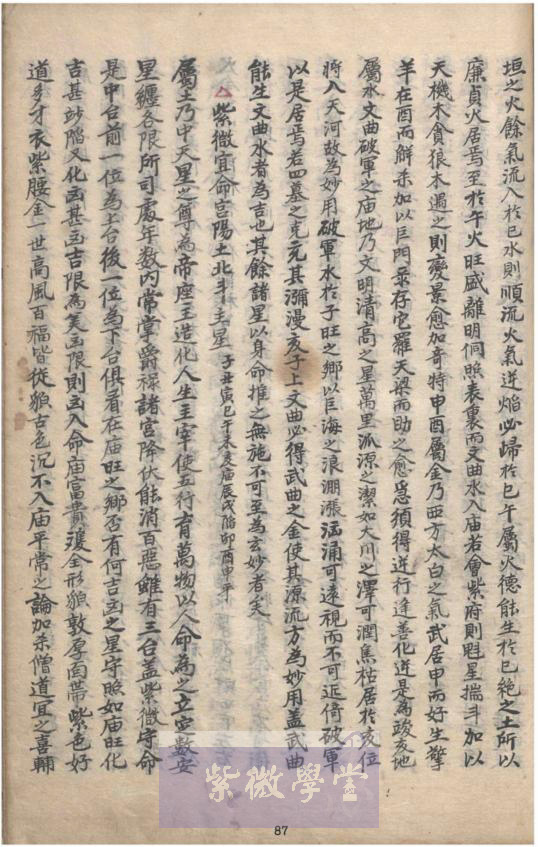 垣之火餘氣流入於巳水則順流火氣逆焰必歸於巳午屬火德能生於巳絕之土所以
廉貞火居焉至於午火旺盛離明侗照表裏而文曲水入庙若會紫府則魁星揣斗加以
天機木貪狼木遇之則變景愈加奇特申酉屬金乃西方太白之氣武居申而好生擎
羊在酉而鮮杀加以巨門录存它羅天梁而助之愈急須得逆行逢善化逆是為竣亥地
屬水文曲破軍之庙地乃文明清高之星萬里派源之潔如大川之澤可潤焦枯居於亥位
將入天河故為妙用破軍水於子旺之鄉以巨海之浪淜漲汹涌可遠視而不可近倚破軍
以是居焉若四墓之克充其瀰漫亥子上文曲必得武曲之金使其源流方為妙用盖武曲
能生文曲水者為吉也其餘諸星以身命推之無施不可至為玄妙者矣
△紫微宜命宮陽土北斗主星 子丑寅巳午未亥庙辰戌陷卯酉申平
屬土乃中天星之尊為帝座主造化人生主宰使五行育萬物以人命為之立定數安
星纏各限所司處年数内常掌爵禄諸宮降伏能消百惡雖有三台盖紫微守命
是中台前一位為上台後一位為下台俱看在庙旺之鄉否有何吉凶之星守照如庙旺化
吉甚妙陷又化凶甚凶吉限為美凶限則凶入命庙富貴双全形貌敦厚面帶紫色好
道多才衣紫腰金一世高風百福皆從貌古色沉不入庙平常之論加杀僧道宜之喜輔
紫微學堂
87